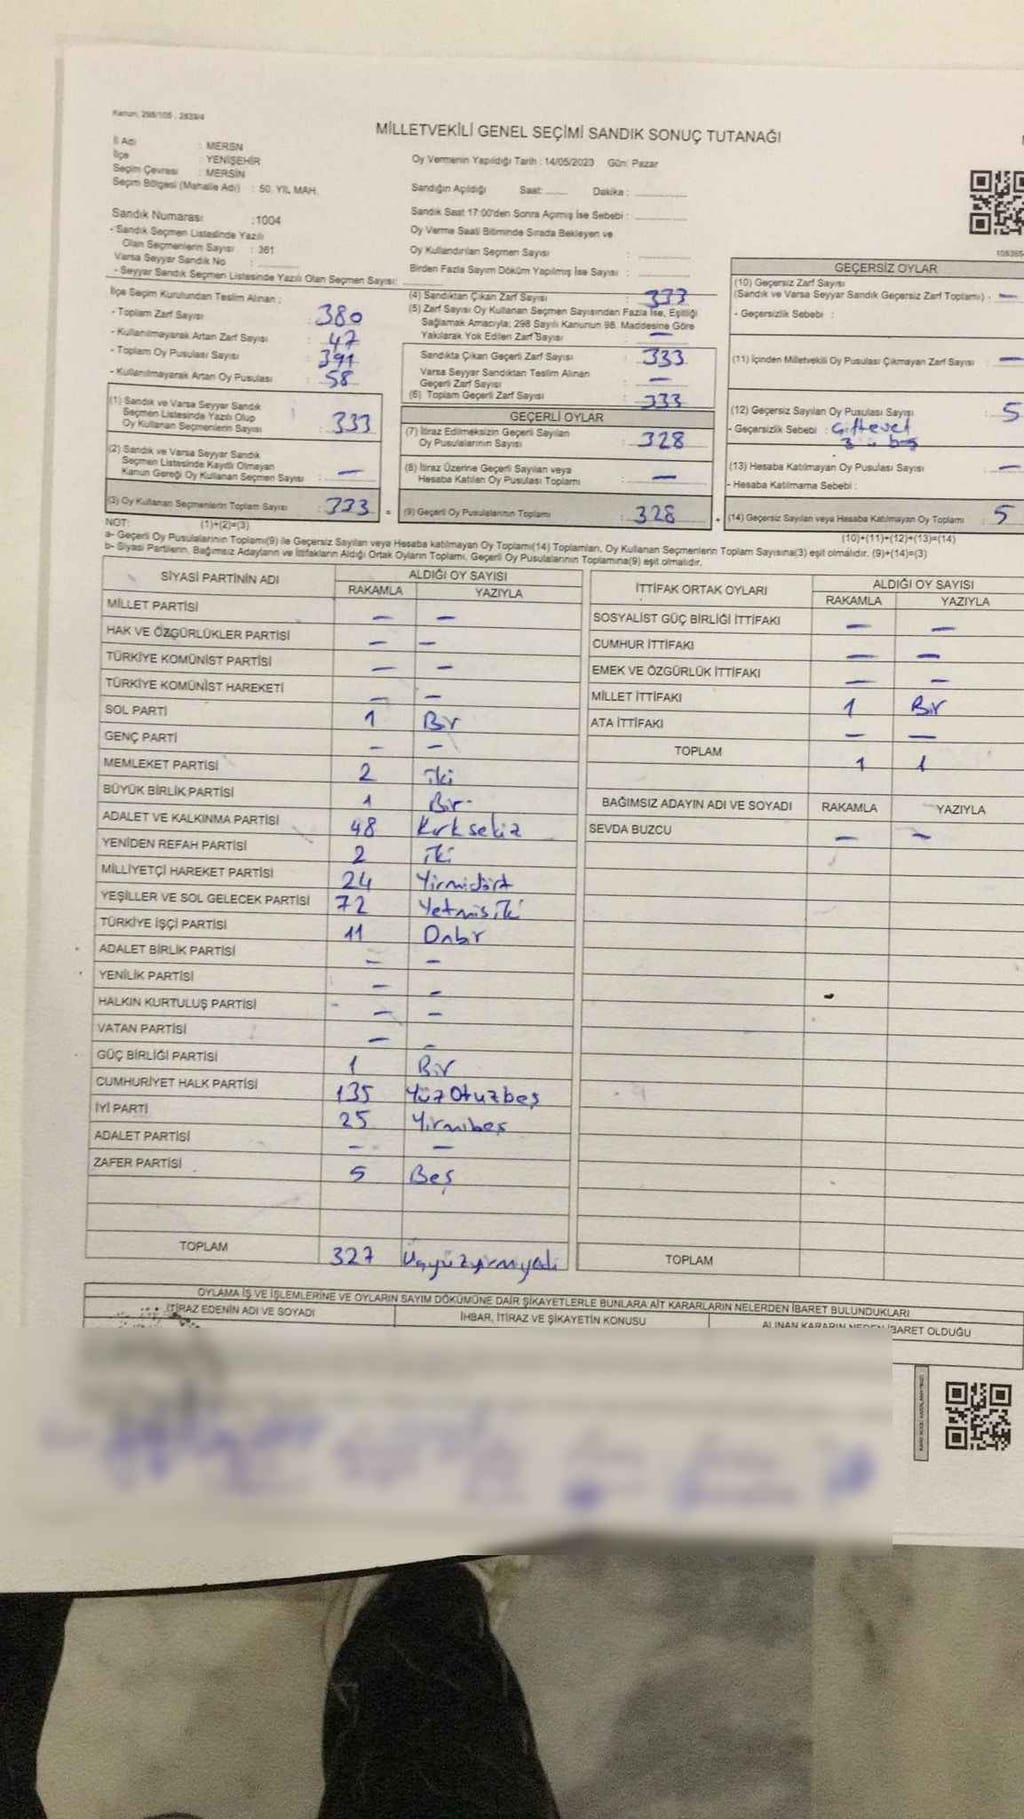 Kanun: 298/105 , 2839/4
MİLLETVEKİLİ GENEL SEÇİMİ SANDIK SONUÇ TUTANAĞI
İl Adı : MERSN
İlçe : YENİŞEHİR
Seçim Çevresi : MERSİN
Seçim Bölgesi (Mahalle Adı) : 50. YIL MAH.
Sandık Numarası :1004
- Sandık Seçmen Listesinde Yazılı
Olan Seçmenlerin Sayısı : 361
Varsa Seyyar Sandık No :
- Seyyar Sandık Seçmen Listesinde Yazılı Olan Seçmen Sayısı:
İlçe Seçim Kurulundan Teslim Alınan :
- Toplam Zarf Sayısı : 380
- Kullanılmayarak Artan Zarf Sayısı : 47
- Toplam Oy Pusulası Sayısı : 391
- Kullanılmayarak Artan Oy Pusulası : 58
(1) Sandık ve Varsa Seyyar Sandık
Seçmen Listesinde Yazılı Olup
Oy Kullanan Seçmenlerin Sayısı : 333
(2) Sandık ve Varsa Seyyar Sandık
Seçmen Listesinde Kayıtlı Olmayan
Kanun Gereği Oy Kullanan Seçmen Sayısı : —
(3) Oy Kullanan Seçmenlerin Toplam Sayısı : 333
Oy Vermenin Yapıldığı Tarih : 14/05/2023 Gün: Pazar
Sandığın Açıldığı Saat: Dakika :
Sandık Saat 17:00'den Sonra Açımış İse Sebebi :
Oy Verme Saati Bitiminde Sırada Bekleyen ve
Oy Kullandırılan Seçmen Sayısı :
Birden Fazla Sayım Döküm Yapılmış İse Sayısı :
(4) Sandıktan Çıkan Zarf Sayısı : 333
(5) Zarf Sayısı Oy Kullanan Seçmen Sayısından Fazla İse, Eşitliği
Sağlamak Amacıyla; 298 Sayılı Kanunun 98. Maddesine Göre
Yakılarak Yok Edilen Zarf Sayısı : —
Sandıkta Çıkan Geçerli Zarf Sayısı : 333
Varsa Seyyar Sandıktan Teslim Alınan
Geçerli Zarf Sayısı : —
(6) Toplam Geçerli Zarf Sayısı : 333
GEÇERLİ OYLAR
(7) İtiraz Edilmeksizin Geçerli Sayılan
Oy Pusulalarının Sayısı : 328
(8) İtiraz Üzerine Geçerli Sayılan veya
Hesaba Katılan Oy Pusulası Toplamı : —
(9) Geçerli Oy Pusulalarının Toplamı : 328
GEÇERSİZ OYLAR
(10) Geçersiz Zarf Sayısı
(Sandık ve Varsa Seyyar Sandık Geçersiz Zarf Toplamı) - —
- Geçersizlik Sebebi :
(11) İçinden Milletvekili Oy Pusulası Çıkmayan Zarf Sayısı : —
(12) Geçersiz Sayılan Oy Pusulası Sayısı : 5
- Geçersizlik Sebebi :
(13) Hesaba Katılmayan Oy Pusulası Sayısı : —
- Hesaba Katılmama Sebebi :
(14) Geçersiz Sayılan veya Hesaba Katılmayan Oy Toplamı : 5
NOT: (1)+(2)=(3) (10)+(11)+(12)+(13)=(14)
a- Geçerli Oy Pusulalarının Toplamı(9) ile Geçersiz Sayılan veya Hesaba katılmayan Oy Toplamı(14) Toplamları, Oy Kullanan Seçmenlerin Toplam Sayısına(3) eşit olmalıdır. (9)+(14)=(3)
b- Siyasi Partilerin, Bağımsız Adayların ve İttifakların Aldığı Ortak Oyların Toplamı, Geçerli Oy Pusulalarının Toplamına(9) eşit olmalıdır.
SİYASİ PARTİNİN ADI ALDIĞI OY SAYISI
RAKAMLA YAZIYLA
MİLLET PARTİSİ — —
HAK VE ÖZGÜRLÜKLER PARTİSİ — —
TÜRKİYE KOMÜNİST PARTİSİ — —
TÜRKİYE KOMÜNİST HAREKETİ — —
SOL PARTİ 1 Bir
GENÇ PARTİ — —
MEMLEKET PARTİSİ 2 iki
BÜYÜK BİRLİK PARTİSİ 1 Bir
ADALET VE KALKINMA PARTİSİ 48 Kırksekiz
YENİDEN REFAH PARTİSİ 2 iki
MİLLİYETÇİ HAREKET PARTİSİ 24 Yirmidört
YEŞİLLER VE SOL GELECEK PARTİSİ 72 Yetmişiki
TÜRKİYE İŞÇİ PARTİSİ 11 Onbir
ADALET BİRLİK PARTİSİ — —
YENİLİK PARTİSİ — —
HALKIN KURTULUŞ PARTİSİ — —
VATAN PARTİSİ — —
GÜÇ BİRLİĞİ PARTİSİ 1 Bir
CUMHURİYET HALK PARTİSİ 135 YüzOtuzbeş
İYİ PARTİ 25 Yirmibeş
ADALET PARTİSİ — —
ZAFER PARTİSİ 5 Beş
TOPLAM 327 Üçyüzyirmiyedi
İTTİFAK ORTAK OYLARI ALDIĞI OY SAYISI
RAKAMLA YAZIYLA
SOSYALİST GÜÇ BİRLİĞİ İTTİFAKI — —
CUMHUR İTTİFAKI — —
EMEK VE ÖZGÜRLÜK İTTİFAKI — —
MİLLET İTTİFAKI 1 Bir
ATA İTTİFAKI — —
TOPLAM 1 1
BAĞIMSIZ ADAYIN ADI VE SOYADI RAKAMLA YAZIYLA
SEVDA BUZCU — —
TOPLAM
OYLAMA İŞ VE İŞLEMLERİNE VE OYLARIN SAYIM DÖKÜMÜNE DAİR ŞİKAYETLERLE BUNLARA AİT KARARLARIN NELERDEN İBARET BULUNDUKLARI
İTİRAZ EDENİN ADI VE SOYADI İHBAR, İTİRAZ VE ŞİKAYETİN KONUSU ALINAN KARARIN NEDEN İBARET OLDUĞU